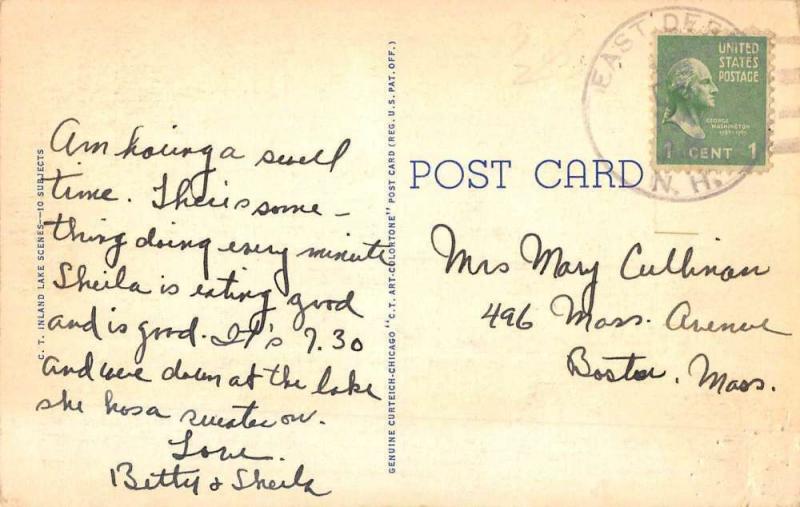 C. T. INLAND LAKE SCENES—10 SUBJECTS
Am having a swell
time. There is some-
thing doing every minute
Sheila is eating good
and is good. It's 7.30
and were down at the lake
she has a sweater on.
Love.
Betty & Sheila
GENUINE CURTEICH-CHICAGO "C.T. ART-COLORTONE" POST CARD (REG. U.S. PAT. OFF.)
POST CARD
EAST DE
N. H.
UNITED
STATES
POSTAGE
GEORGE
WASHINGTON
1 CENT 1
Mrs Mary Cullinan
496 Mass. Avenue
Boston, Mass.